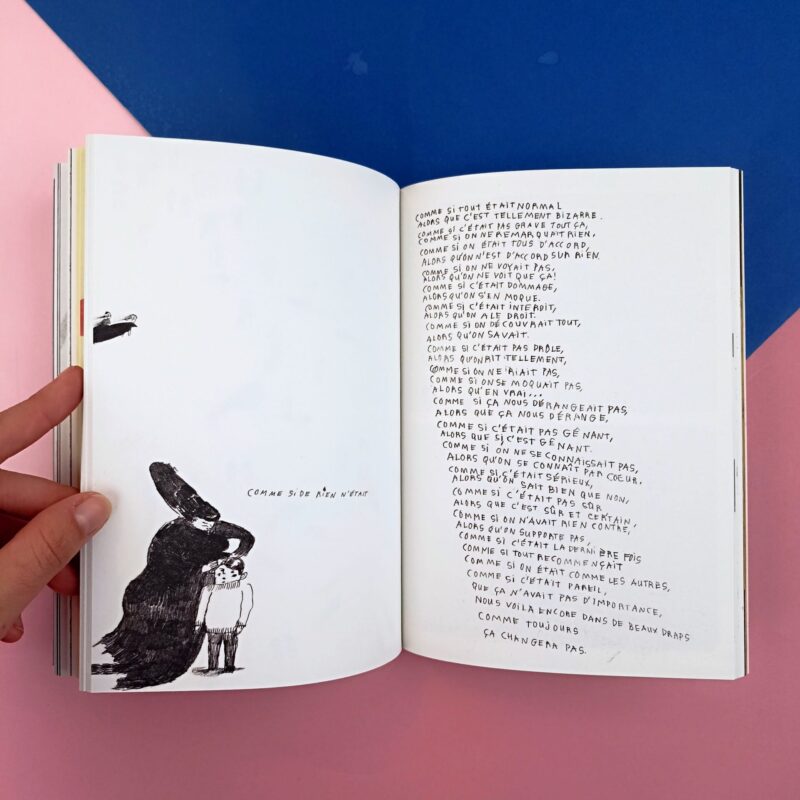 COMME SI DE RIEN N'ÉTAIT
COMME SI TOUT ÉTAIT NORMAL
ALORS QUE C'EST TELLEMENT BIZARRE.
COMME SI C'ÉTAIT PAS GRAVE TOUT ÇA,
COMME SI ON NE REMARQUAIT RIEN,
COMME SI ON ÉTAIT TOUS D'ACCORD,
ALORS QU'ON N'EST D'ACCORD SUR RIEN.
COMME SI ON NE VOYAIT PAS,
ALORS QU'ON NE VOIT QUE ÇA!
COMME SI C'ÉTAIT DOMMAGE,
ALORS QU'ON S'EN MOQUE.
COMME SI C'ÉTAIT INTERDIT,
ALORS QU'ON A LE DROIT.
COMME SI ON DÉCOUVRAIT TOUT,
ALORS QU'ON SAVAIT.
COMME SI C'ÉTAIT PAS DRÔLE,
ALORS QU'ON RIT TELLEMENT,
COMME SI ON NE RIAIT PAS,
COMME SI ON SE MOQUAIT PAS,
ALORS QU'EN VRAI...
COMME SI ÇA NOUS DÉRANGEAIT PAS,
ALORS QUE ÇA NOUS DÉRANGE,
COMME SI C'ÉTAIT PAS GÉNANT,
ALORS QUE SI C'EST GÉNANT.
COMME SI ON NE SE CONNAISSAIT PAS,
ALORS QU'ON SE CONNAÎT PAR COEUR.
COMME SI C'ÉTAIT SÉRIEUX,
ALORS QU'ON SAIT BIEN QUE NON,
COMME SI C'ÉTAIT PAS SÛR
ALORS QUE C'EST SÛR ET CERTAIN,
COMME SI ON N'AVAIT RIEN CONTRE,
ALORS QU'ON SUPPORTE PAS,
COMME SI C'ÉTAIT LA DERNIÈRE FOIS
COMME SI TOUT RECOMMENÇAIT
COMME SI ON ÉTAIT COMME LES AUTRES,
COMME SI C'ÉTAIT PAREIL,
QUE ÇA N'AVAIT PAS D'IMPORTANCE,
NOUS VOILÀ ENCORE DANS DE BEAUX DRAPS
COMME TOUJOURS
ÇA CHANGERA PAS.